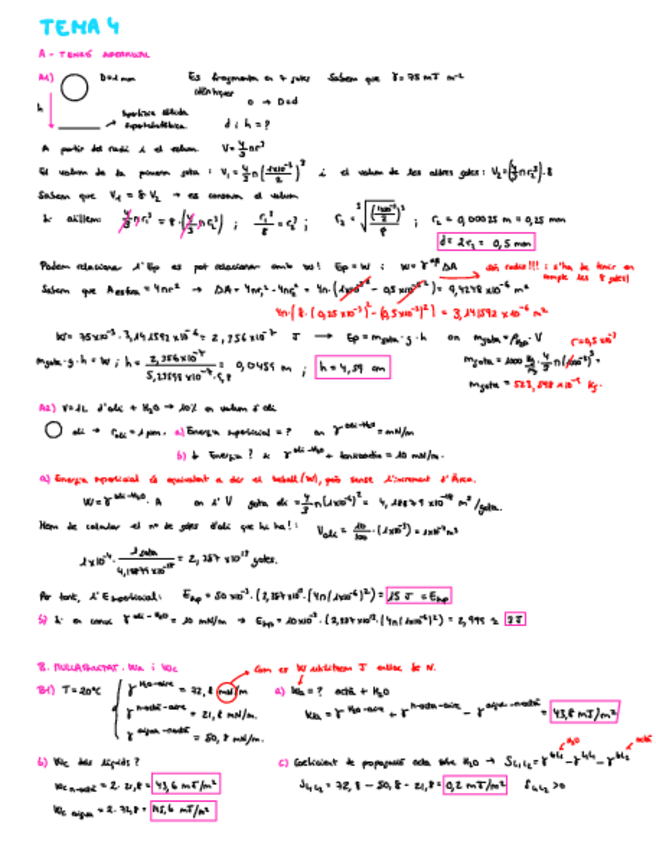 TEMA 4
A - TENSIÓ SUPERFICIAL
A1) D=1 mm Es fragmenta en 7 gotes Sabem que γ = 75 mJ m⁻²
D → D=d
h superfície sòlida
superhidrofòbica d i h = ?
A partir del radi i el volum V = 4/3 πr³
El volum de la primera gota : V₁ = 4/3 π (1x10⁻³/2)³ i el volum de les altres gotes : V₂ = (4/3 πr₂³)·8
Sabem que V₁ = 8 V₂ → es conserva el volum
Si aïllem: 4/3 πr₁³ = 8·(4/3 πr₂³) ; r₁³/8 = r₂³ ; r₂ = ; r₂ = 0,00025 m = 0,25 mm
d = 2r₂ = 0,5 mm
Podem relacionar l'Ep es pot relacionar amb W! Ep = W ; W = γ ΔA són radis!!! i s'ha de tenir en compte les 8 gotes!
Sabem que A esfera = 4πr² → ΔA = 4πr₁² - 4πr₂² = 4π = 9,4248 x10⁻⁶ m²
4π(8·(0,25x10⁻³)² - (0,5x10⁻³)²) = 3,141592 x10⁻⁶ m²
W = 75x10⁻³ · 3,141592 x10⁻⁶ = 2,356 x10⁻⁷ J → Ep = m gota · g · h on m gota = ρ H₂O · V r = 0,5 x10⁻³
m gota · g · h = W ; h = 2,356x10⁻⁷ / 9,8 = 0,0459 m ; h = 4,59 cm m gota = 1000 kg/m³ · 4/3 π
m gota = 523,598 x10⁻⁹ kg.
A2) V = 1L d'oli + H₂O → 10% en volum d'oli
oli → r oli = 1 μm. a) Energia superficial = ? on γ oli-H₂O = mN/m
b) ↓ Energia ? si γ oli-H₂O + tensioactiu = 10 mN/m.
a) Energia superficial és equivalent a dir el treball (W), però sense l'increment d'Àrea.
W = γ oli-H₂O · A on l' V gota oli = 4/3 π (1x10⁻⁶)³ = 4,18879 x10⁻¹⁸ m³/gota.
Hem de calcular el nº de gotes d'oli que hi ha!: V oli = 10/100 · (1x10⁻³) = 1x10⁻⁴ m³
1x10⁻⁴ · 1 gota / 4,18879 x10⁻¹⁸ = 2,387 x10¹³ gotes.
Per tant, l'E superficial: E sup = 50 x10⁻³ · (2,387 x10¹³ · (4π (1x10⁻⁶)²) = 15 J = E sup
b) Si en canvi γ oli-H₂O = 10 mN/m → E sup = 10x10⁻³ · (2,387 x10¹³ · (4π (1x10⁻⁶)²) = 2,995 ≈ 3 J
B. MULLABILITAT. Wa i Wc
Com es W utilitzem J enlloc de N.
B1) T = 20ºC γ H₂O-aire = 72,8 mN/m a) Wa = ? octà + H₂O
γ n-octà-aire = 21,8 mN/m. Wa = γ H₂O-aire + γ n-octà-aire - γ aigua-octà = 43,8 mJ/m²
γ aigua-octà = 50,8 mN/m.
b) Wc dels líquids ? c) Coeficient de propagació octà sobre H₂O →
Wc n-octà = 2 · 21,8 = 43,6 mJ/m² = 72,8 - 50,8 - 21,8 = 0,2 mJ/m² > 0
Wc aigua = 2 · 72,8 = 145,6 mJ/m²